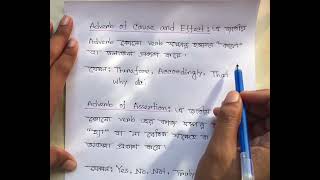 Adverb of Cause and Effect: এ জাতীয়
Adverb কোনো verb
বা ফলাফল প্রকাশ করে।
যেমন: Therefore, Accordingly, That
why etc.
Adverb of Assertion: এ জাতীয়
কোনো verb এর কাজ
"হ্যাঁ" বা না
প্রকাশ করে।
Yes, No, Not, Truly